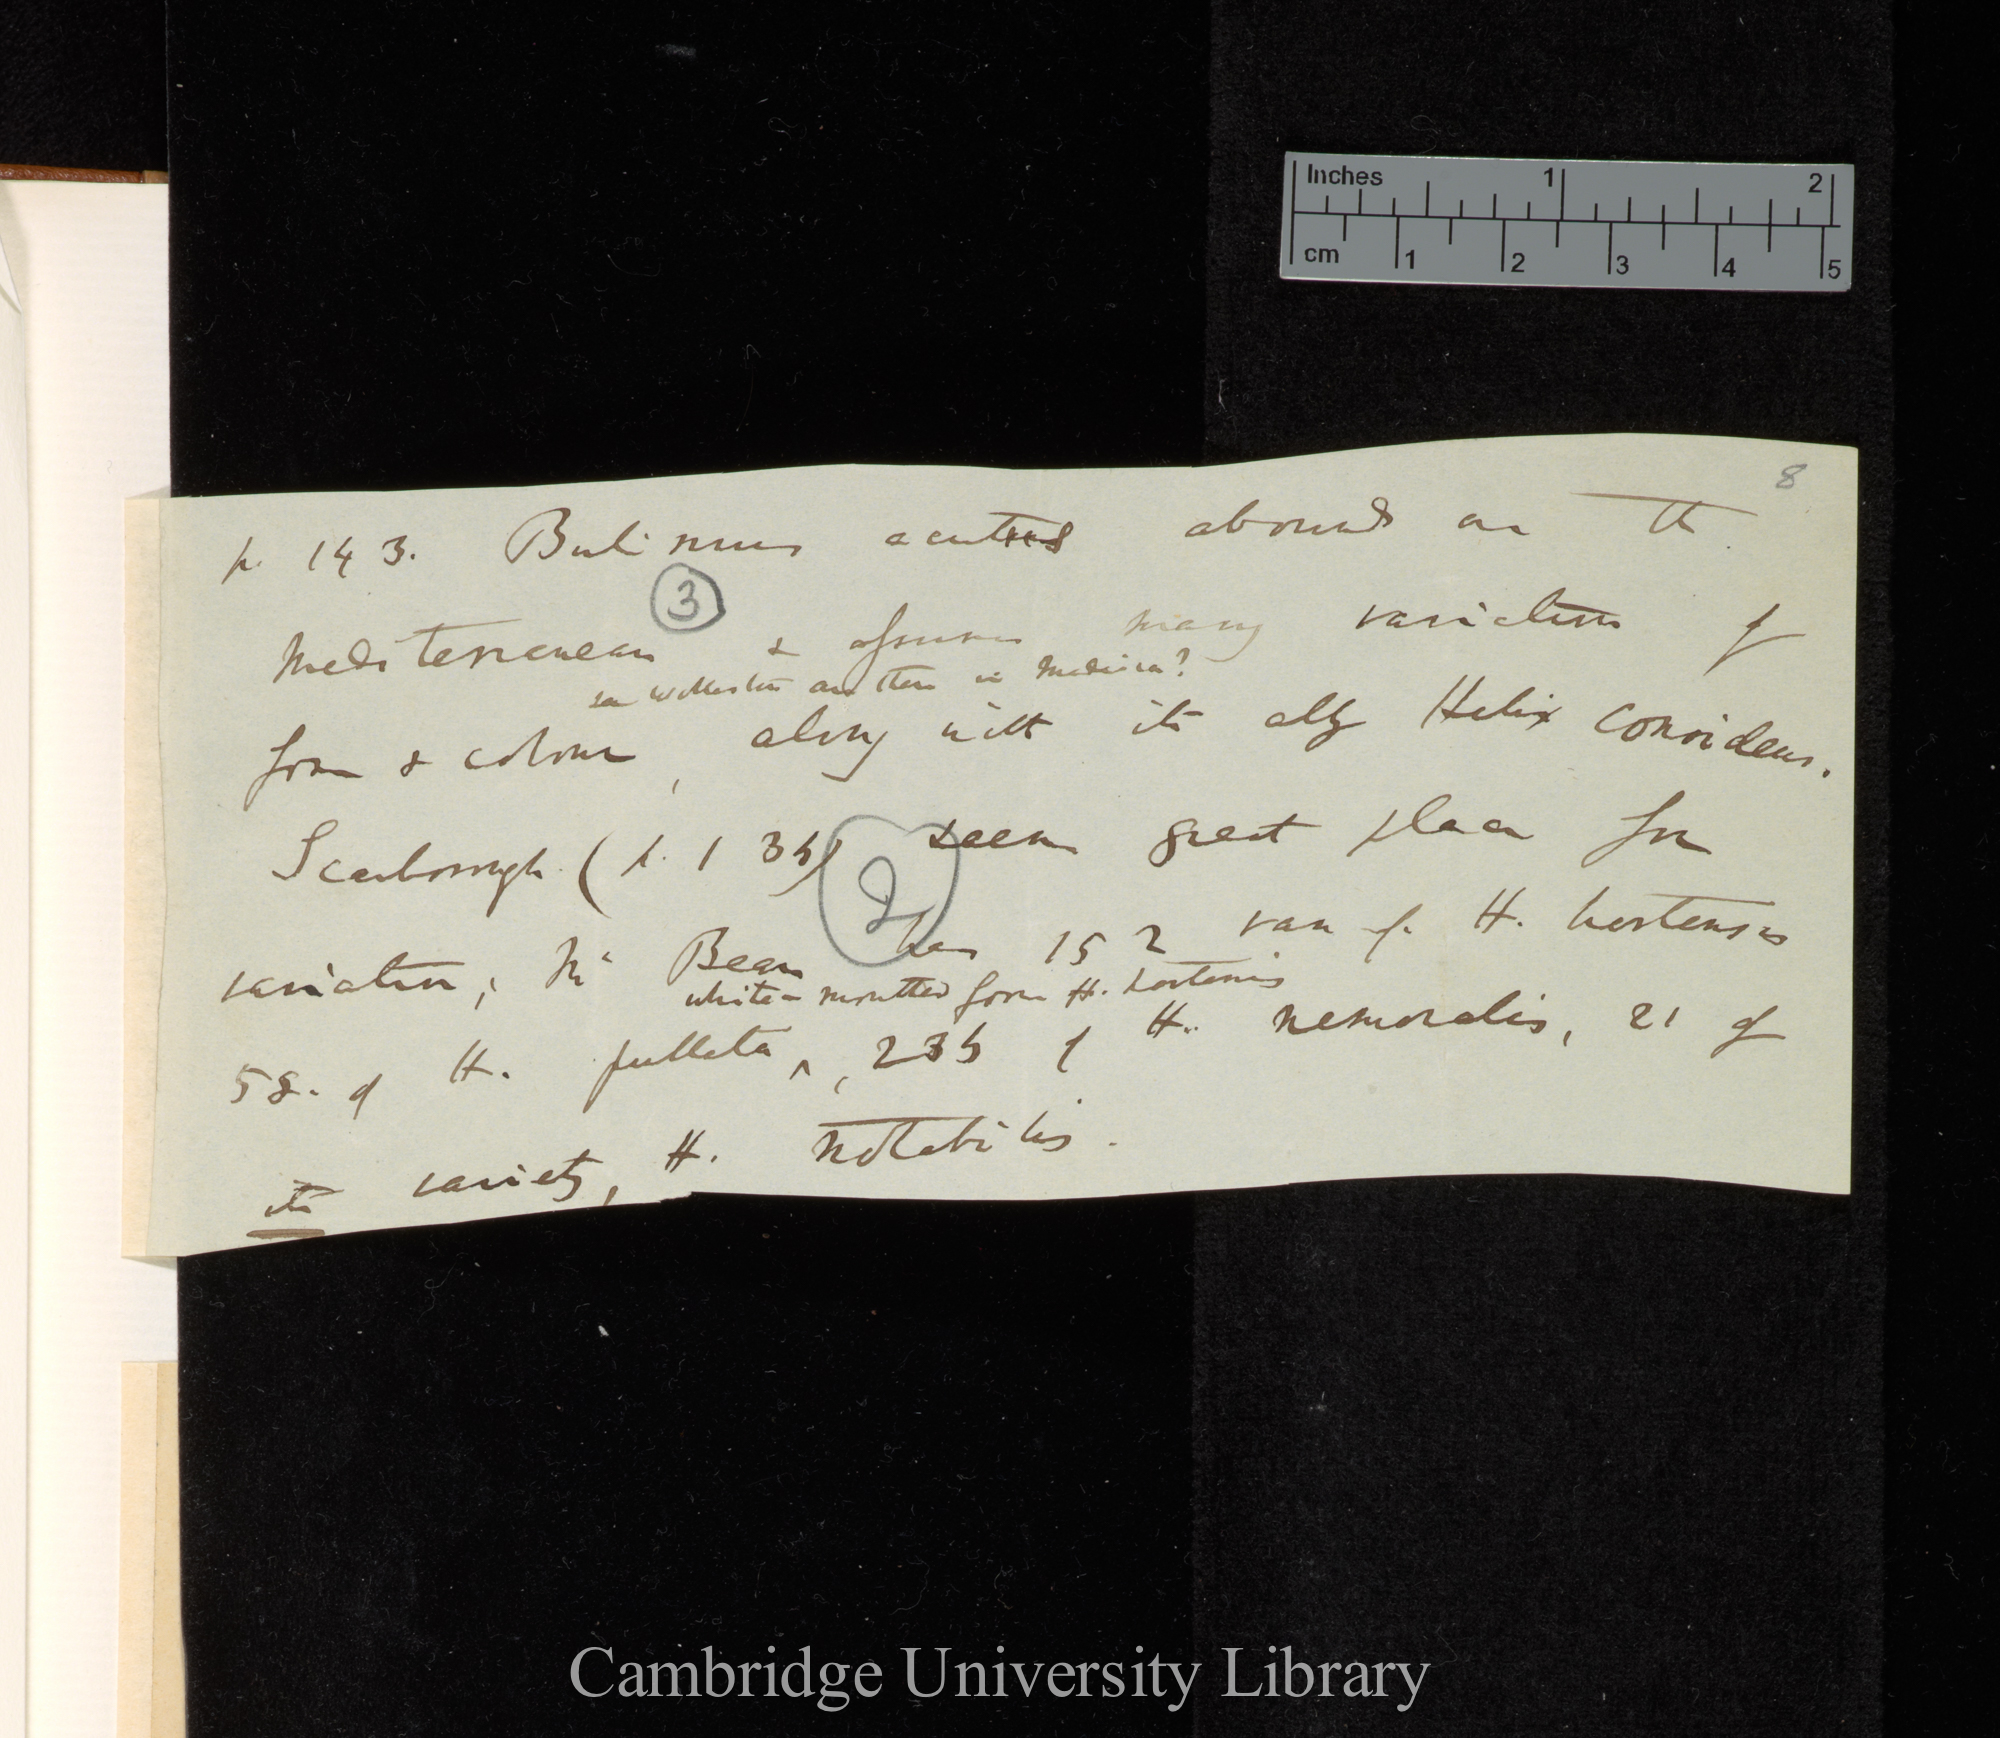 8
p. 143. Bulimus acutus abounds on the
③
Mediterranean & assumes many variations of
see Wollaston are there in Madeira?
form & colour, along with its ally Helix conoidens.
Scarborough (p. 135) seems great place for
②
variation; Mr Bean has 152 var of H. hortensis
white-mouthed form H. hortensis
58. of H. pulleta ^, 235 of H. nemoralis, 21 of
its variety, H. notabilis.
Inches 1 2
cm 1 2 3 4 5
Cambridge University Library